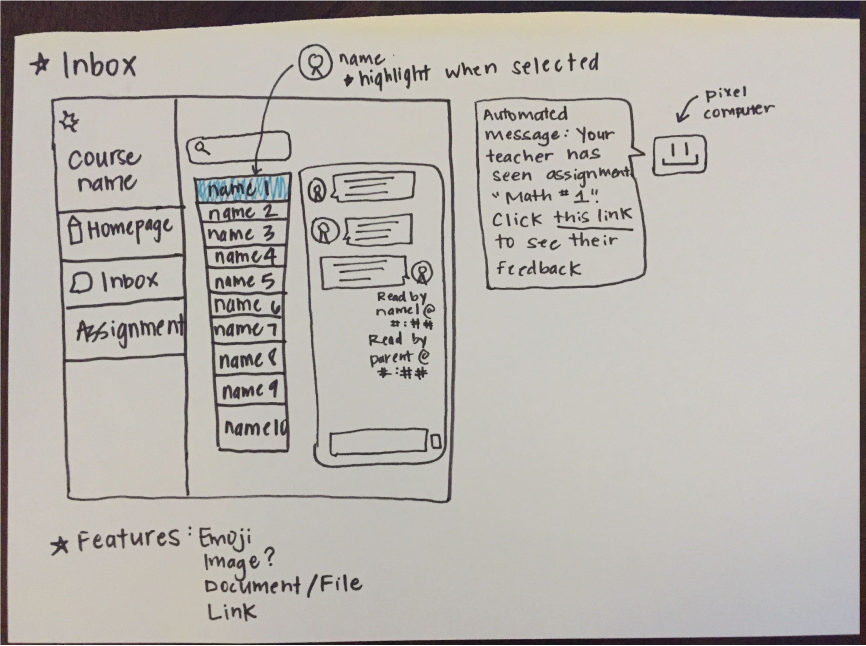 ★ Inbox
name
★ highlight when selected
Course
name
Homepage
Inbox
Assignment
name 1
name 2
name 3
name 4
name 5
name 6
name 7
name 8
name 9
name 10
Read by
name1 @
#:##
Read by
parent @
#:##
Automated
message: Your
teacher has
seen assignment
"Math #1"!
Click this link
to see their
feedback
pixel
computer
★ Features: Emoji
Image?
Document/File
Link